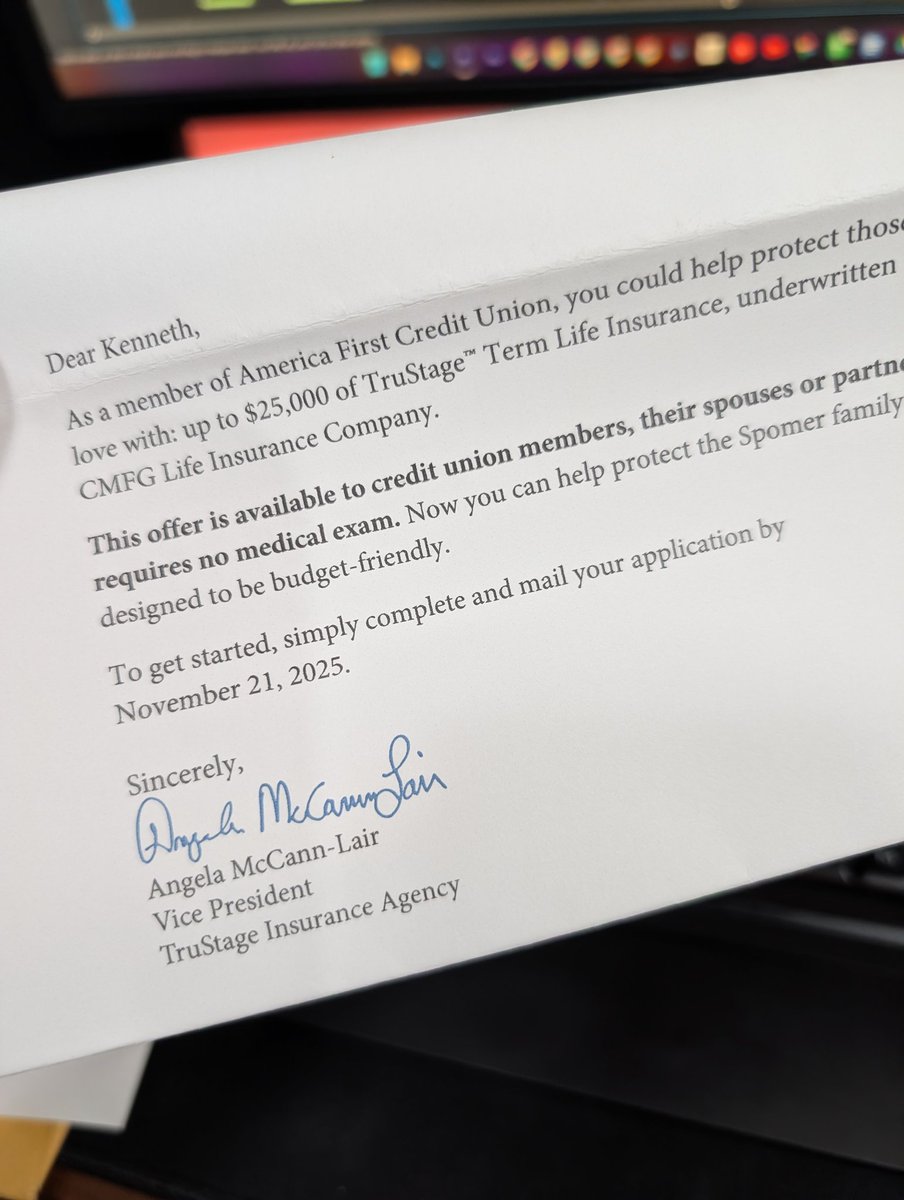 Dear Kenneth,
As a member of America First Credit Union, you could help protect those
love with: up to $25,000 of TruStage™ Term Life Insurance, underwritten
CMFG Life Insurance Company.
This offer is available to credit union members, their spouses or
requires no medical exam. Now you can help protect the Spomer family
designed to be budget-friendly.
To get started, simply complete and mail your application by
November 21, 2025.
Sincerely,
Angela McCann-Lair
Angela McCann-Lair
Vice President
TruStage Insurance Agency